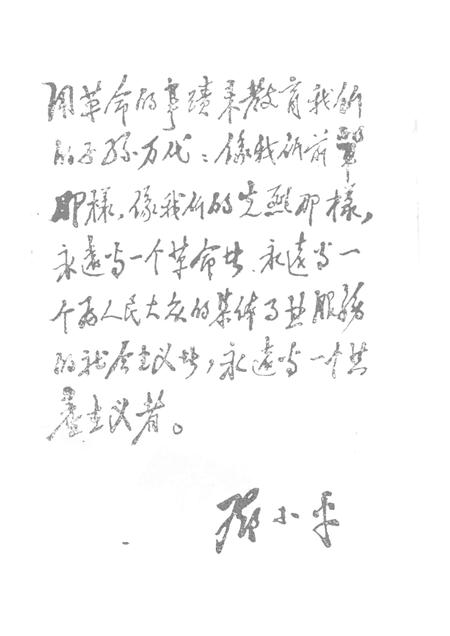 用革命的事蹟来教育我们
的子孙万代：像我们前輩
那樣，像我们的先烈那樣，
永遠当一个革命者、永远当一
个为人民大众的集体事业服務
的社会主义者，永遠当一个共
產主义者。
邓小平